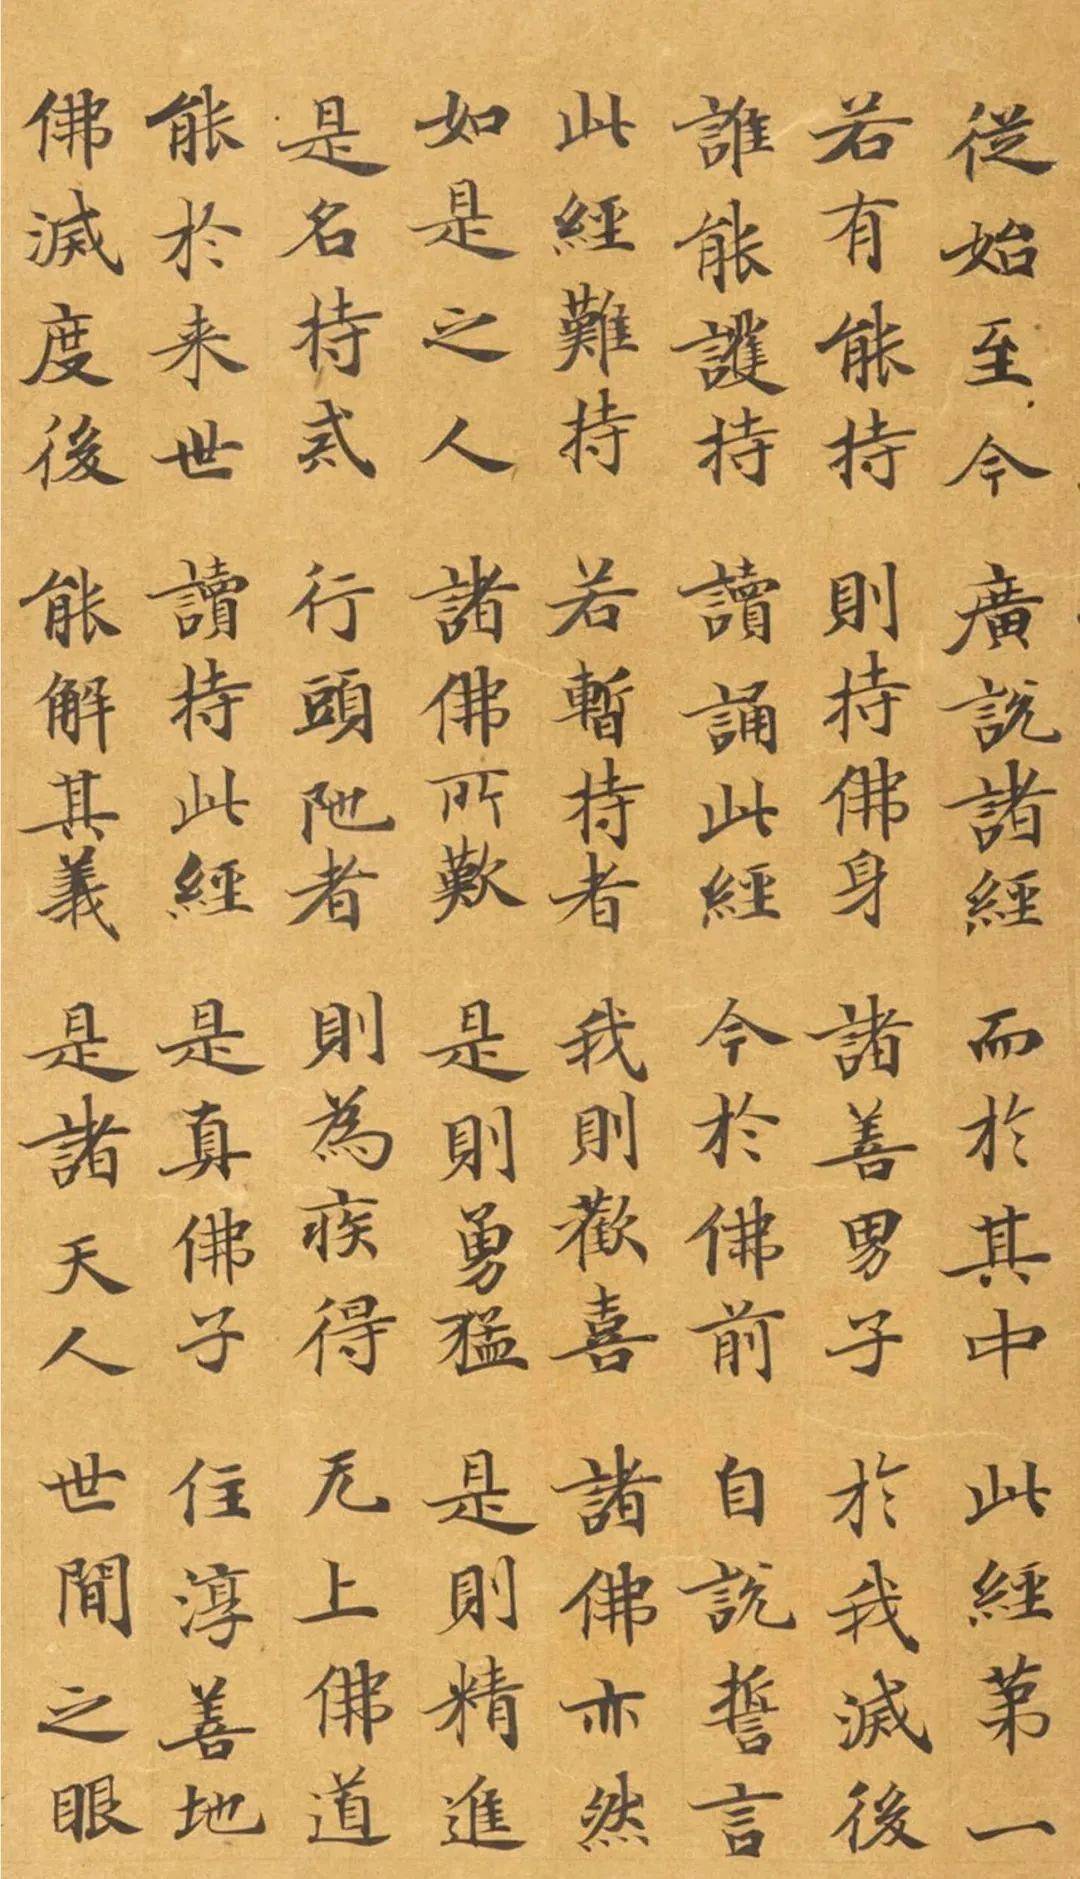 從始至今 廣說諸經 而於其中 此經第一
若有能持 則持佛身 諸善男子 於我滅後
誰能護持 讀誦此經 今於佛前 自說誓言
此經難持 若暫持者 我則歡喜 諸佛亦然
如是之人 諸佛所歎 是則勇猛 是則精進
是名持貳 行頭陁者 則為疾得 无上佛道
能於来世 讀持此經 是真佛子 住淳善地
佛滅度後 能解其義 是諸天人 世間之眼